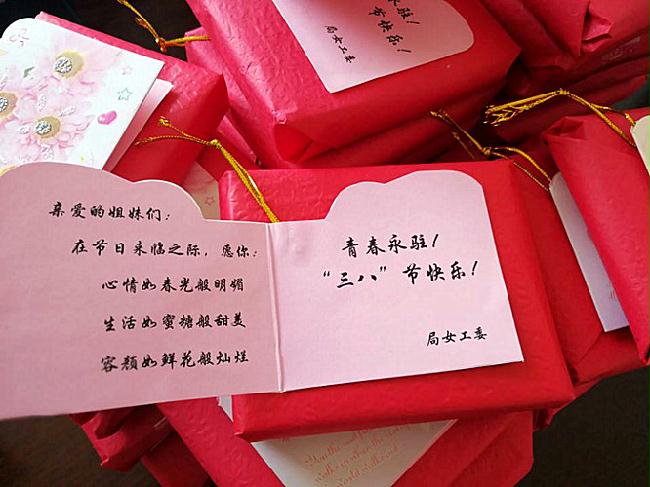 亲爱的姐妹们：
在节日来临之际，愿你：
心情如春光般明媚
生活如蜜糖般甜美
容颜如鲜花般灿烂
青春永驻！
“三八”节快乐！
局女工委
永驻！
节快乐！
局女工委